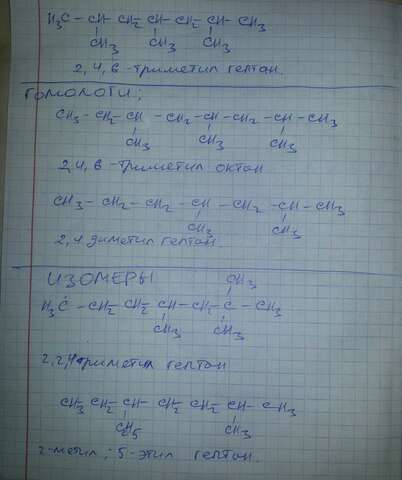 H₃C - CH - CH₂ - CH - CH₂ - CH - CH₃
CH₃ CH₃ CH₃
2,4,6-триметил гептан.
ГОМОЛОГИ;
CH₃ - CH₂ - CH - CH₂ - CH - CH₂ - CH - CH₃
CH₃ CH₃ CH₃
2,4,6-триметил октан
CH₃ - CH₂ - CH₂ - CH - CH₂ - CH - CH₃
CH₃ CH₃
2,4 диметил гептан.
ИЗОМЕРЫ
CH₃
H₃C - CH₂ - CH₂ - CH - CH₂ - C - CH₃
CH₃ CH₃
2,2,4 триметил гептан
CH₃ CH₂ - CH - CH₂ CH₂ - CH - CH₃
C₂H₅ CH₃
2-метил; 5-этил гептан.